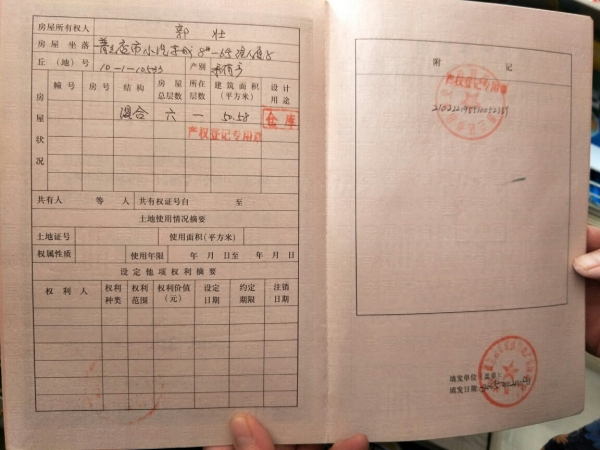 房屋所有权人 郭壮
房屋坐落
丘（地）号 10-1-10533 产别 私有房
幢号 房号 结构 房屋总层数 所在层数 建筑面积（平方米） 设计用途
房屋状况
混合 六 一 50.58 仓库
产权登记专用章
共有人 等 人 共有权证号自 至
土地使用情况摘要
土地证号 使用面积（平方米）
权属性质 使用年限 年 月 日至 年 月 日
设定他项权利摘要
权利人 权利种类 权利范围 权利价值（元） 设定日期 约定期限 注销日期
附 记
产权登记专用章
填发单位（盖章）：
填发日期：